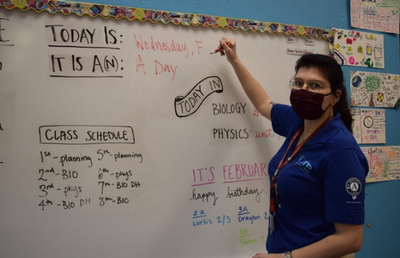 TODAY IS: Wednesday, F
IT IS A(N): A Day
TODAY IN
BIOLOGY:
PHYSICS:
CLASS SCHEDULE
1st-planning 5th-planning
2nd-BIO 6th-phys
3rd-phys 7th-BIO DH
4th-BIO DH 8th-BIO
IT'S FEBRUAR
happy birthday
2A 3A
Curtis 2/3 Draylon 2